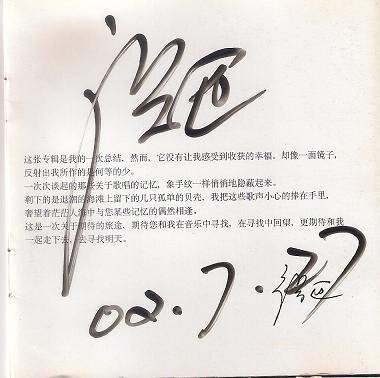 这张专辑是我的一次总结，然而，它没有让我感受到收获的幸福，却像一面镜子，
反射出我所作的是何等的少。
一次次谈起的那些关于歌唱的记忆，象手纹一样悄悄地隐蔽起来。
剩下的是退潮的海滩上留下的几只孤单的贝壳，我把这些歌声小心的捧在手里，
奢望着茫茫人海中与您某些记忆的偶然相逢。
这是一次关于期待的旅途，期待您和我在音乐中寻找，在寻找中回望，更期待和我
一起走下去，去寻找明天。
02.7.27